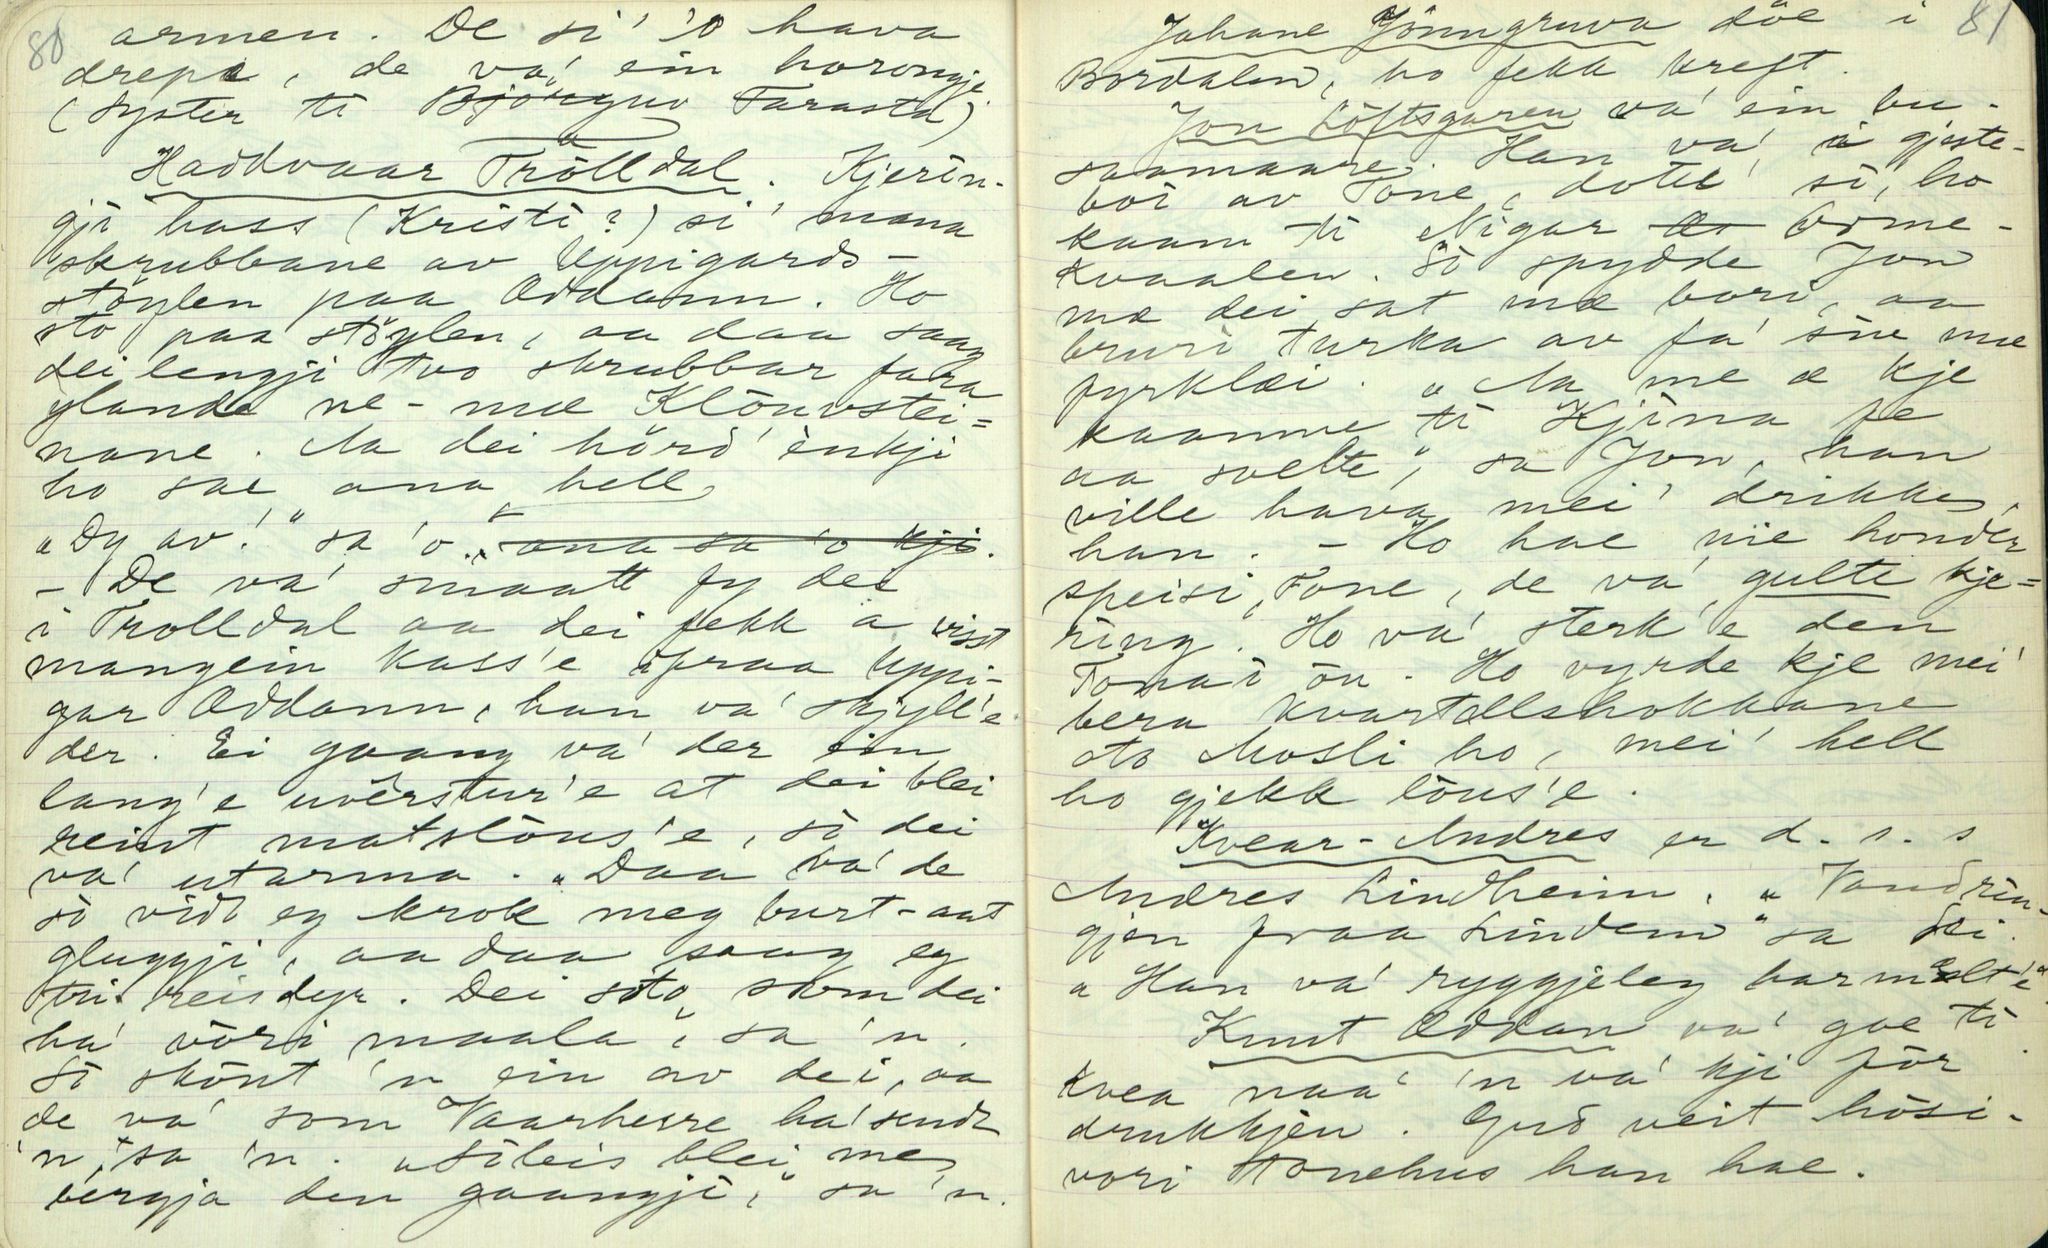 80
armen. De si' 'o hava
drepe, de va' ein horongje.
(Syster ti Bjørguv Tarastd)
Haddvaar Trolldal. Kjerin-
gji hass (Kristi?) si' mana
skrubbane av Uppigards-
støylen paa Øddann. Ho
sto paa støylen, aa daa saag
dei lengji two skrubbar fara
ylande ne-mæ Klouvstei=
nane. Aa dei hørd' enkji
ho sae ana hell
"Dy av!" sa 'o. ana sa 'o kji.
- De va' smaatt fy dei
i Trolldal aa dei fekk a visst
mangein kass'e ifraa Uppi-
gar Øddann, han va' skjyll'e
der. Ei gaang va' der ein
lang'e uvêrstur'e at dei blei
reint matslöus'e, så dei
va' utarma. "Daa va' de
so vidt eg krok meg burt-aat
gluggji, aa daa saag eg
tri reisdyr. Dei sto som dei
ha' vori maala", sa 'n.
So skönt 'n ein av dei, aa
de va' som Vaarherre ha' sendt
'n, sa 'n. "Soleis blei me
bergja den gaangji," sa 'n.
81
Johane Jönngruva döe i
Bordalen, ho fekk kreft.
Jon Löftsgaren va' ein bu-
saamaare. Han va' i gjeste-
boi av Tone, dotte' si, ho
kaam ti Nigar Bome-
kvaalen. So spydde Jon
mæ dei sat mæ bori, aa
bruri turka av fa' sin mæ
fyrklæi. "Aa me æ kje
kaamne ti Kjina fe
aa svelte", sa Jon, han
ville hava mei' drikkes,
han. - Ho hae nie honder
speisi, Tone, de va' gulte kje=
ring. Ho va' sterk'e den
Tona i ön. Ho vyrde kje mei'
bera kvartellshokkane
sto Mosli ho, mei' hell
ho gjekk löus'e.
Kvear-Andres er d. s. s
Andres Lindheim. "Vandrin-
gjen fraa Lindem" sa dei.
"Han va' ryggjeleg barmælt'e"
Knut Øddan va' goe ti
kvea naa' 'n va' kji för
drukkjen. Gud veit hosi-
vori Tonehus han hae.